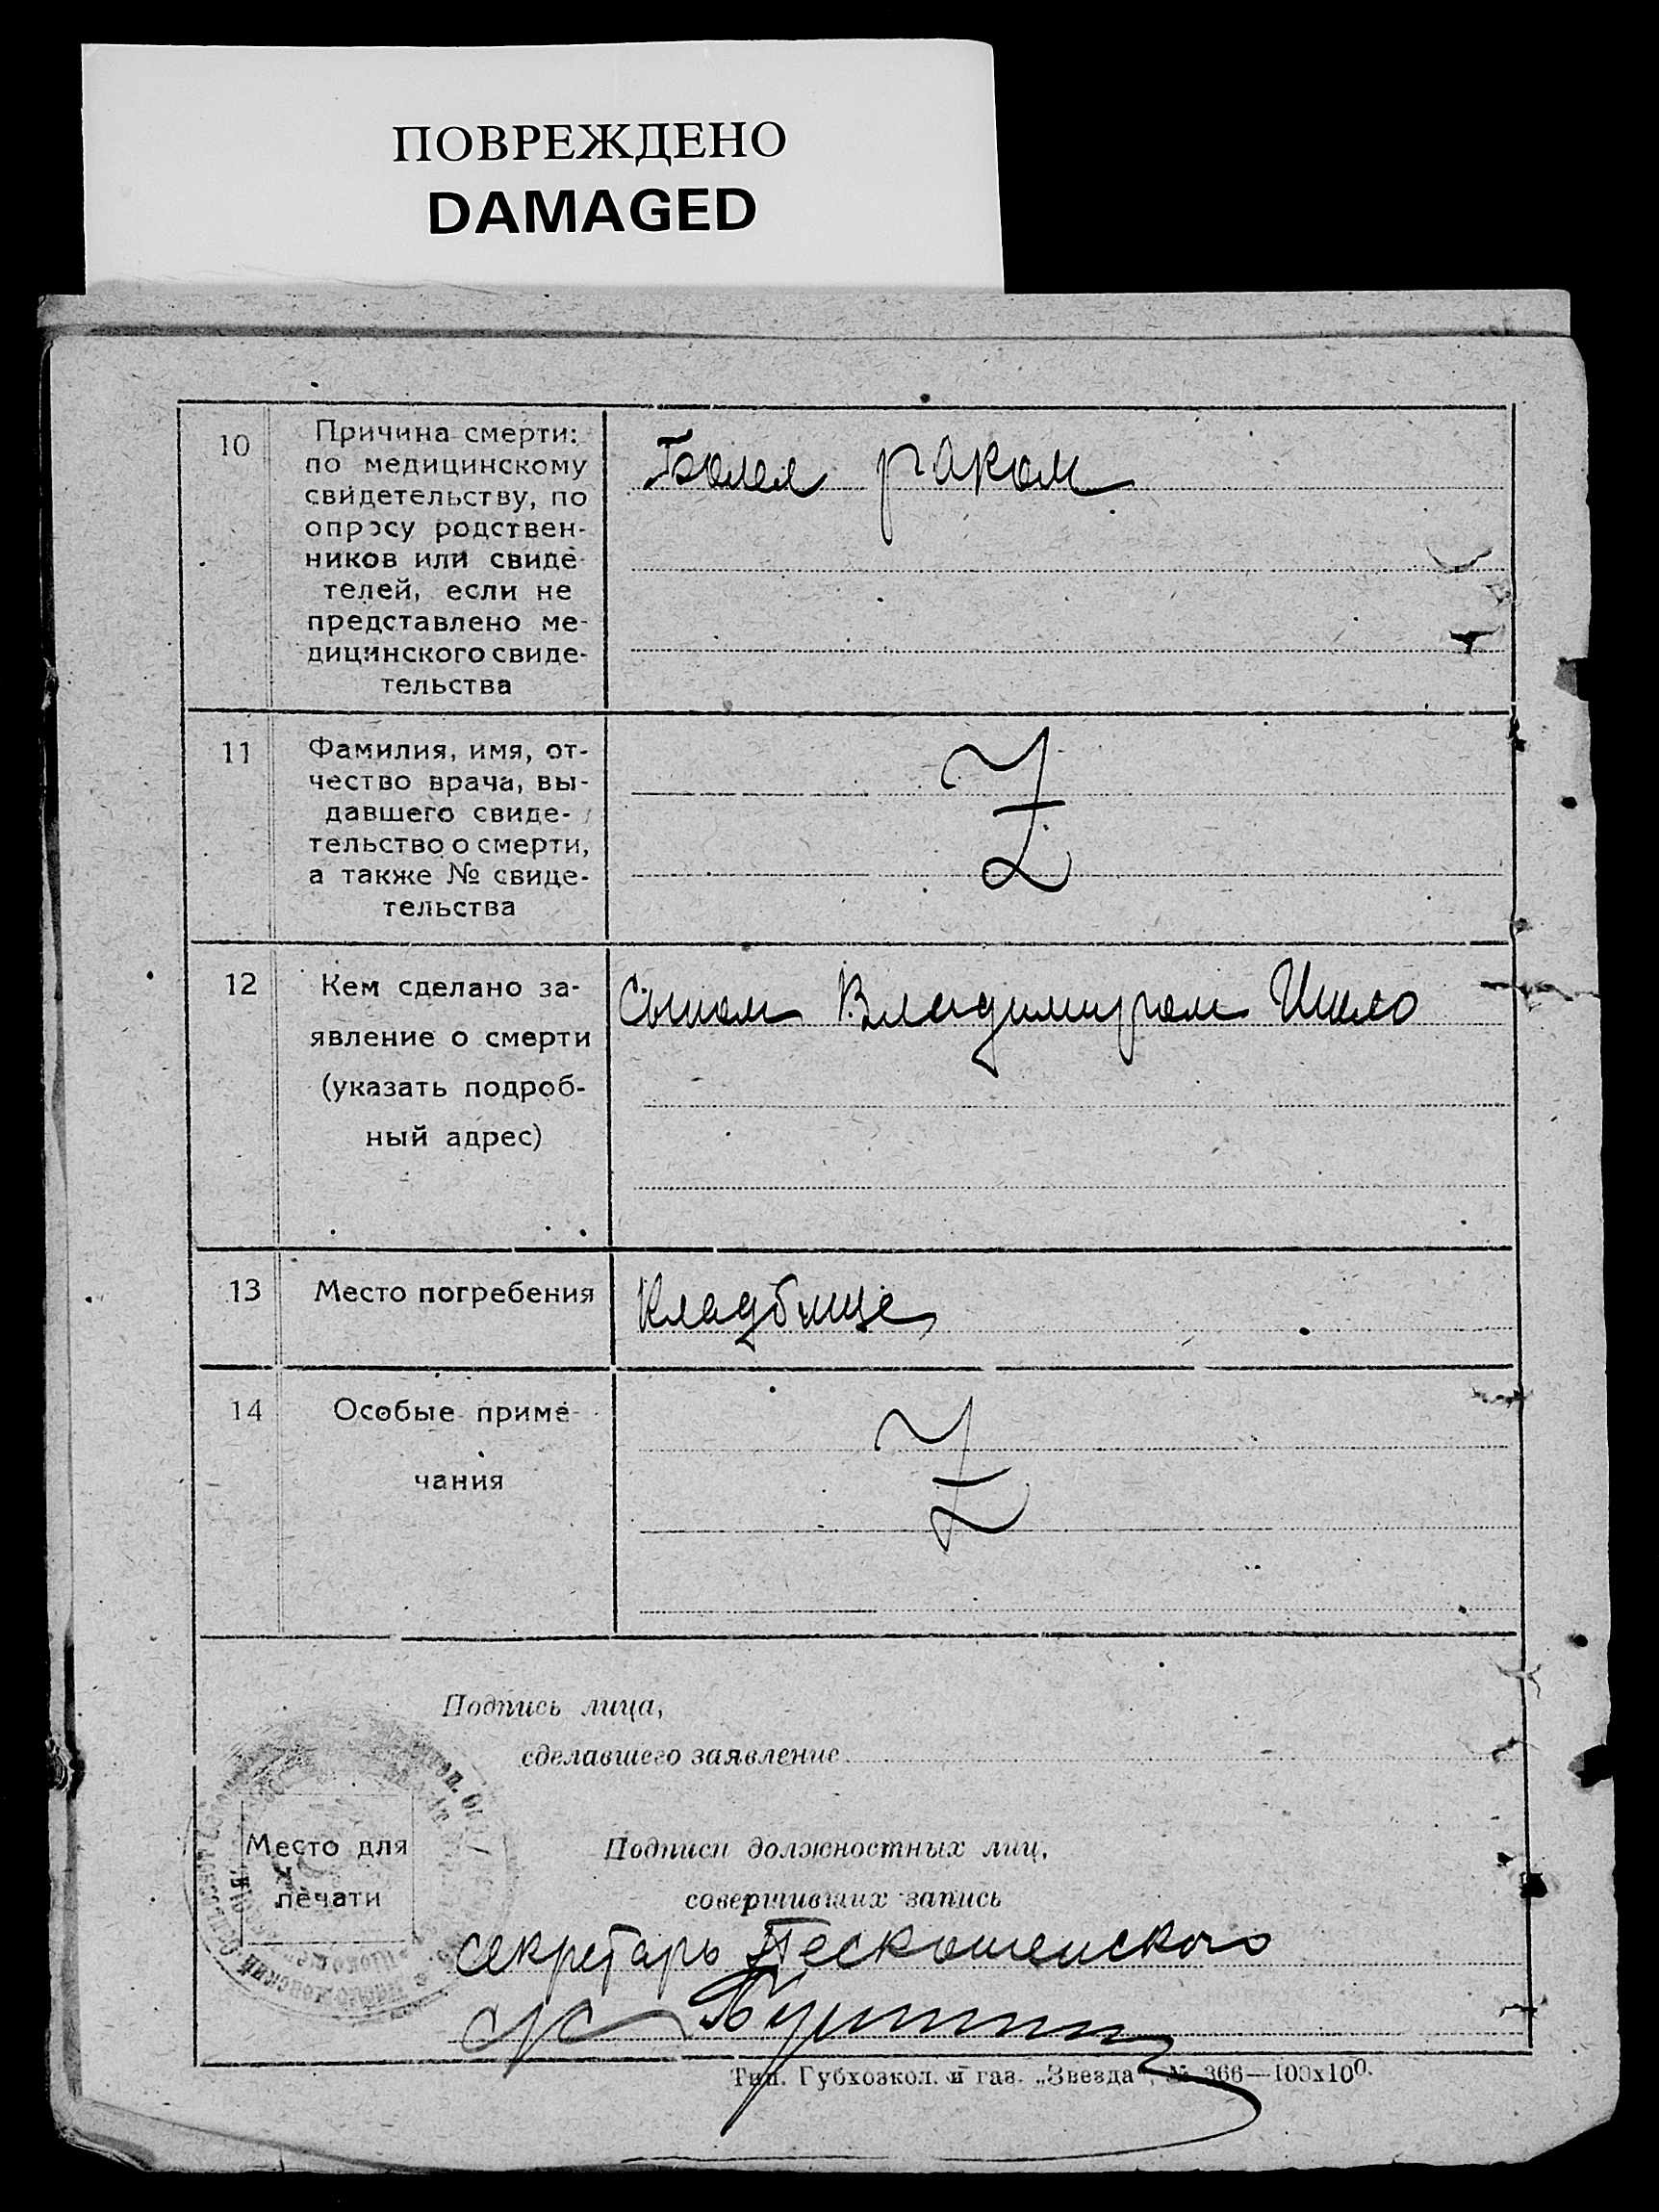 ПОВРЕЖДЕНО
DAMAGED
10
Причина смерти:
по медицинскому
свидетельству, по
опросу родствен-
ников или свиде-
телей, если не
представлено ме-
дицинского свиде-
тельства
Болел раком
11
Фамилия, имя, от-
чество врача, вы-
давшего свиде-
тельство о смерти,
а также № свиде-
тельства
Z
12
Кем сделано за-
явление о смерти
(указать подроб-
ный адрес)
Сыном Владимиром
13
Место погребения
Кладбище
14
Особые приме-
чания
Z
Подпись лица,
сделавшего заявление
Место для
печати
Подписи должностных лиц,
совершивших запись
секретарь
Тип. Губхозкол. и газ. „Звезда", № 366—100х100.